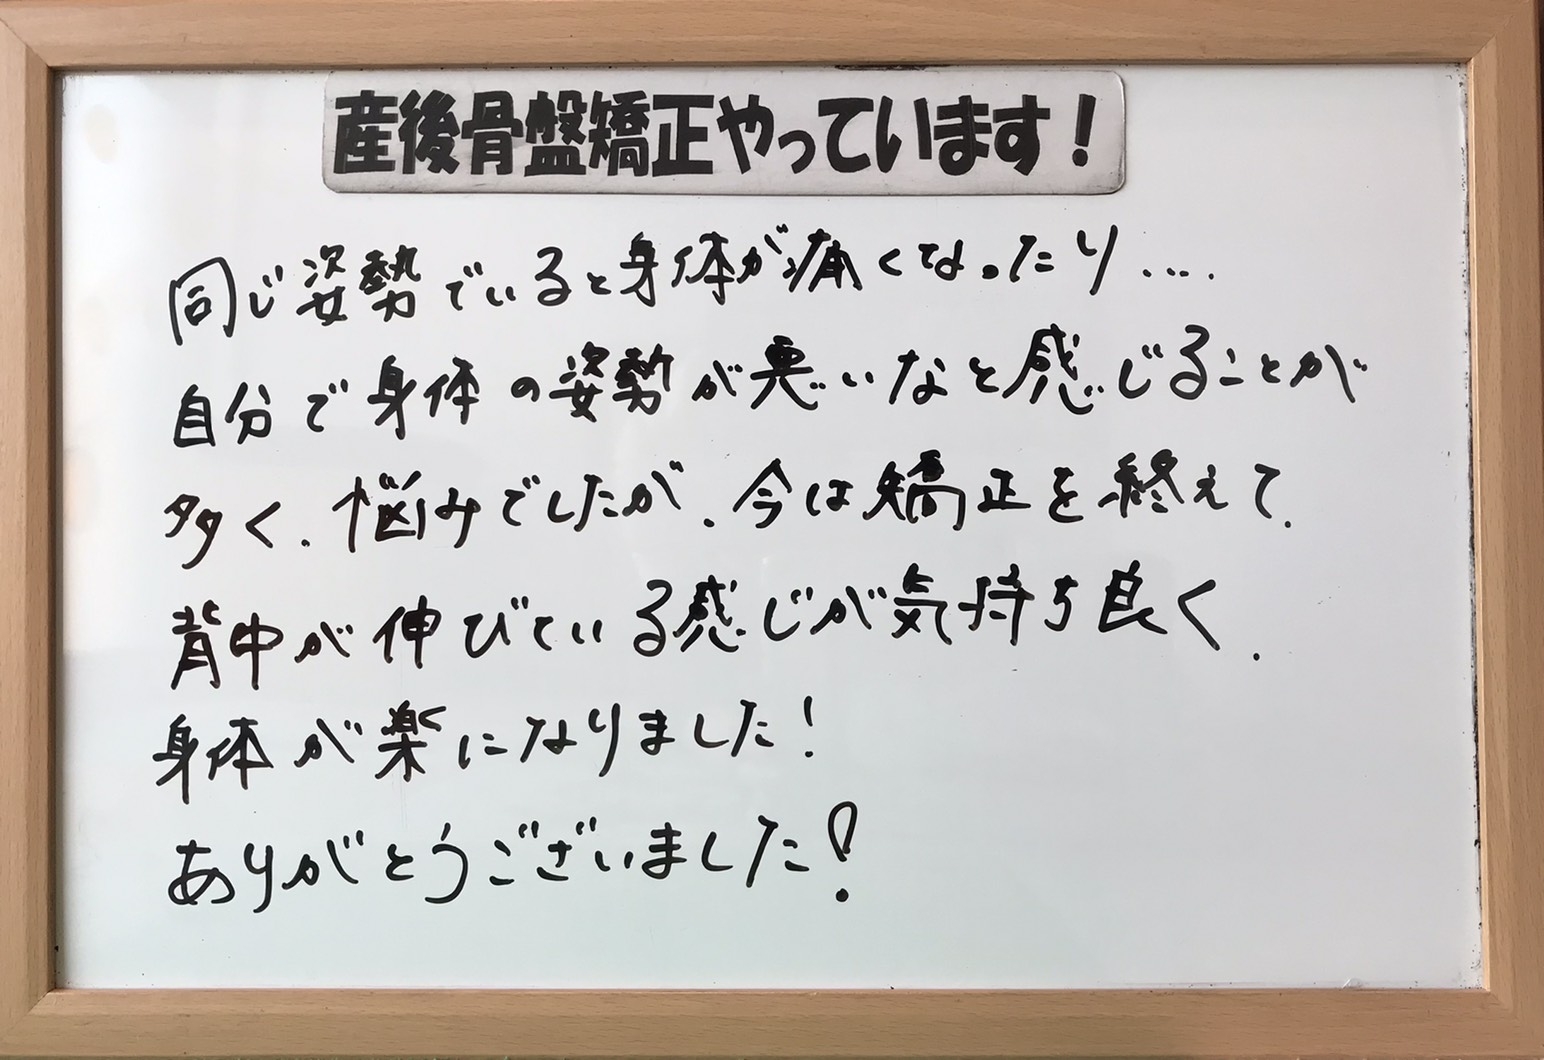 産後骨盤矯正やっています!
同じ姿勢でいると身体が痛くなったり....
自分で身体の姿勢が悪いなと感じることが
多く、悩みでしたが、今は矯正を終えて、
背中が伸びている感じが気持ち良く、
身体が楽になりました!
ありがとうございました!